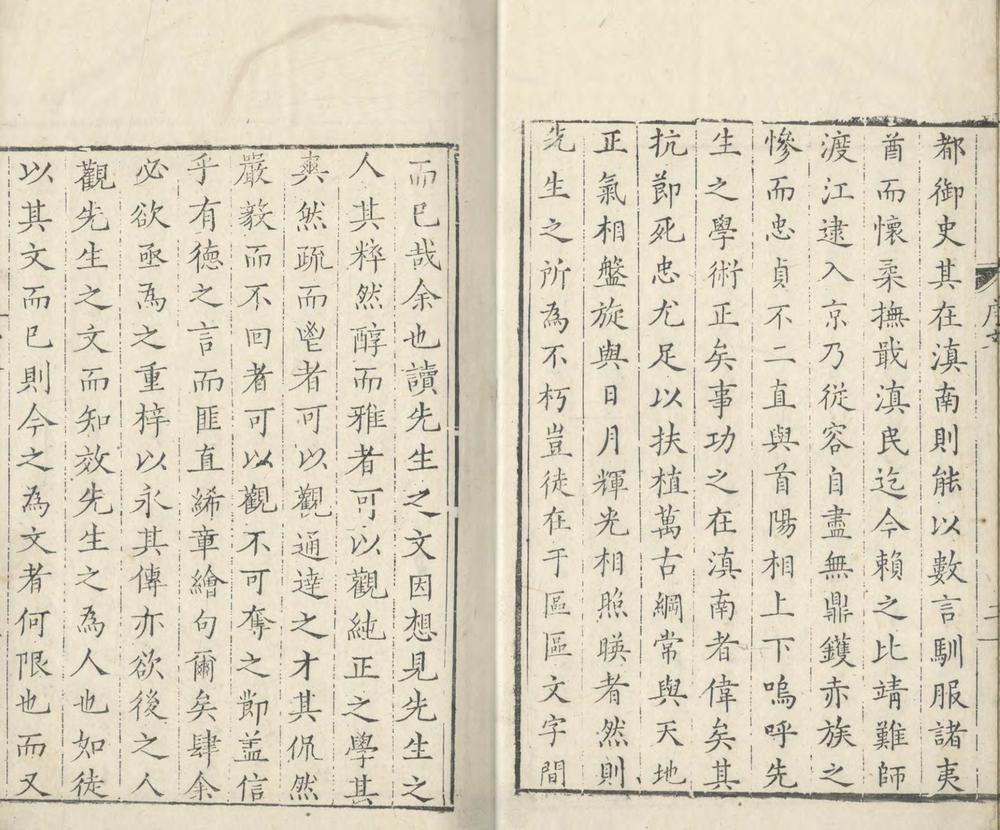 都御史其在滇南則能以數言馴服諸夷
酋而懷柔撫戢滇民迄今賴之比靖難師
渡江逮入京乃從容自盡無鼎鑊赤族之
慘而忠貞不二直與首陽相上下嗚呼先
生之學術正矣事功之在滇南者偉矣其
抗節死忠尤足以扶植萬古綱常與天地
正氣相盤旋與日月輝光相照暎者然則
先生之所為不朽豈徒在于區區文字間
而已哉余也讀先生之文因想見先生之
人其粹然醇而雅者可以觀純正之學其
爽然疏而鬯者可以觀通達之才其侃然
嚴毅而不回者可以觀不可奪之節盖信
乎有德之言而匪直絺章繪句爾矣肆余
必欲亟為之重梓以永其傳亦欲後之人
觀先生之文而知效先生之為人也如徒
以其文而已則今之為文者何限也而又
序文